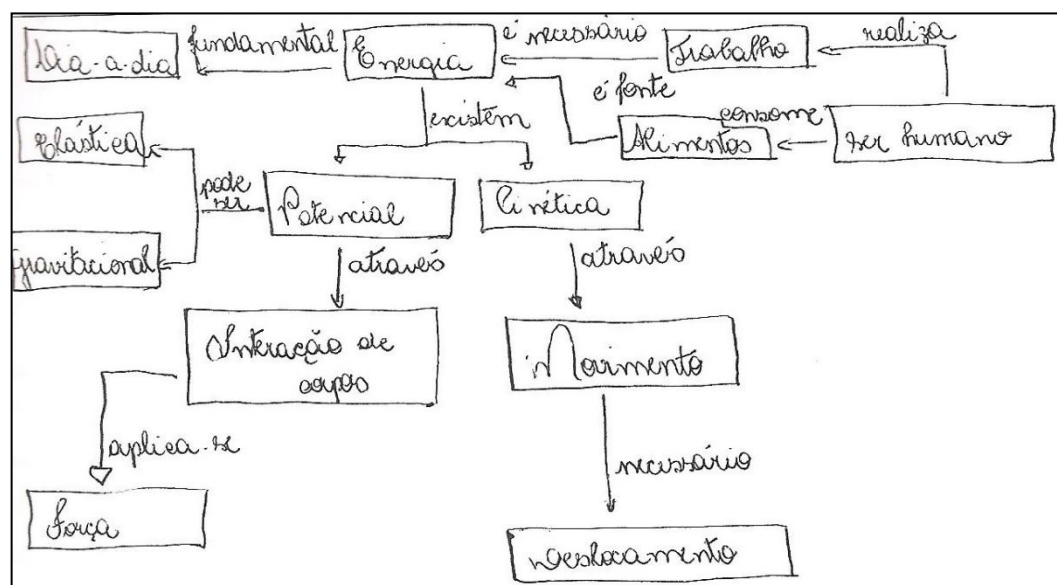 Dia-a-dia
fundamental
Energia
é necessário
Trabalho
realiza
é fonte
Alimentos
consome
ser humano
existem
Elástica
pode
ser
Potencial
Cinética
Gravitacional
através
através
Interação de
corpos
Movimento
aplica-se
necessário
Força
Deslocamento